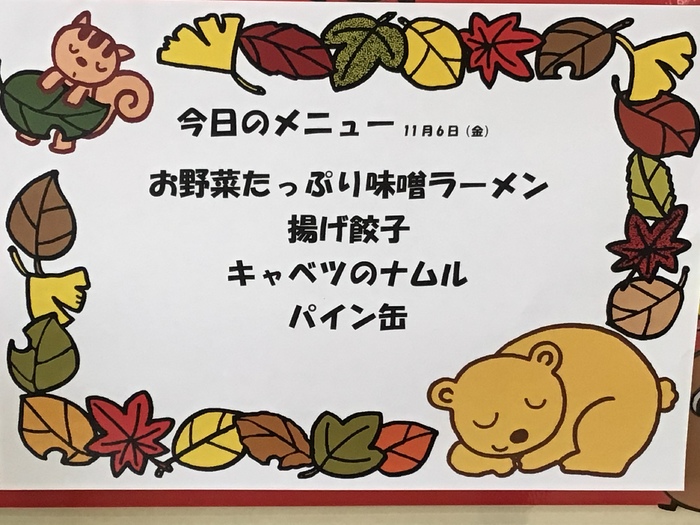 今日のメニュー 11月6日（金）
お野菜たっぷり味噌ラーメン
揚げ餃子
キャベツのナムル
パイン缶